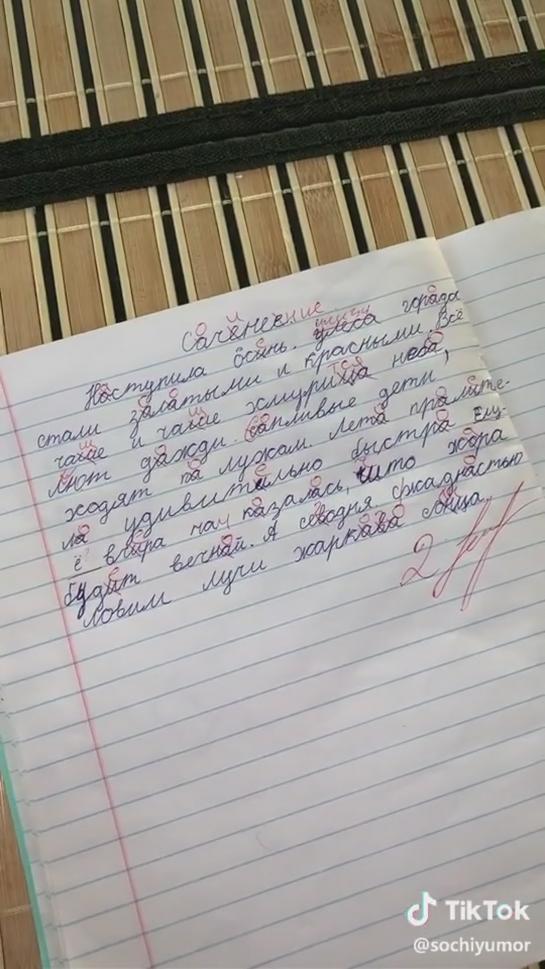 Сачененние
Наступила осинь. улеса горада
стали залатыми и красными. Всё
чащие и чащие хмурица неба,
лют дажди. Сапливые дети,
ходят па лужам. Лета пралите-
ла удивительно быстра Ещ-
ё вчира нам казалась, што жара
будит вечнай. А севодня с жаднастью
ловим лучи жаркава сонца.
2
TikTok
@sochiyumor